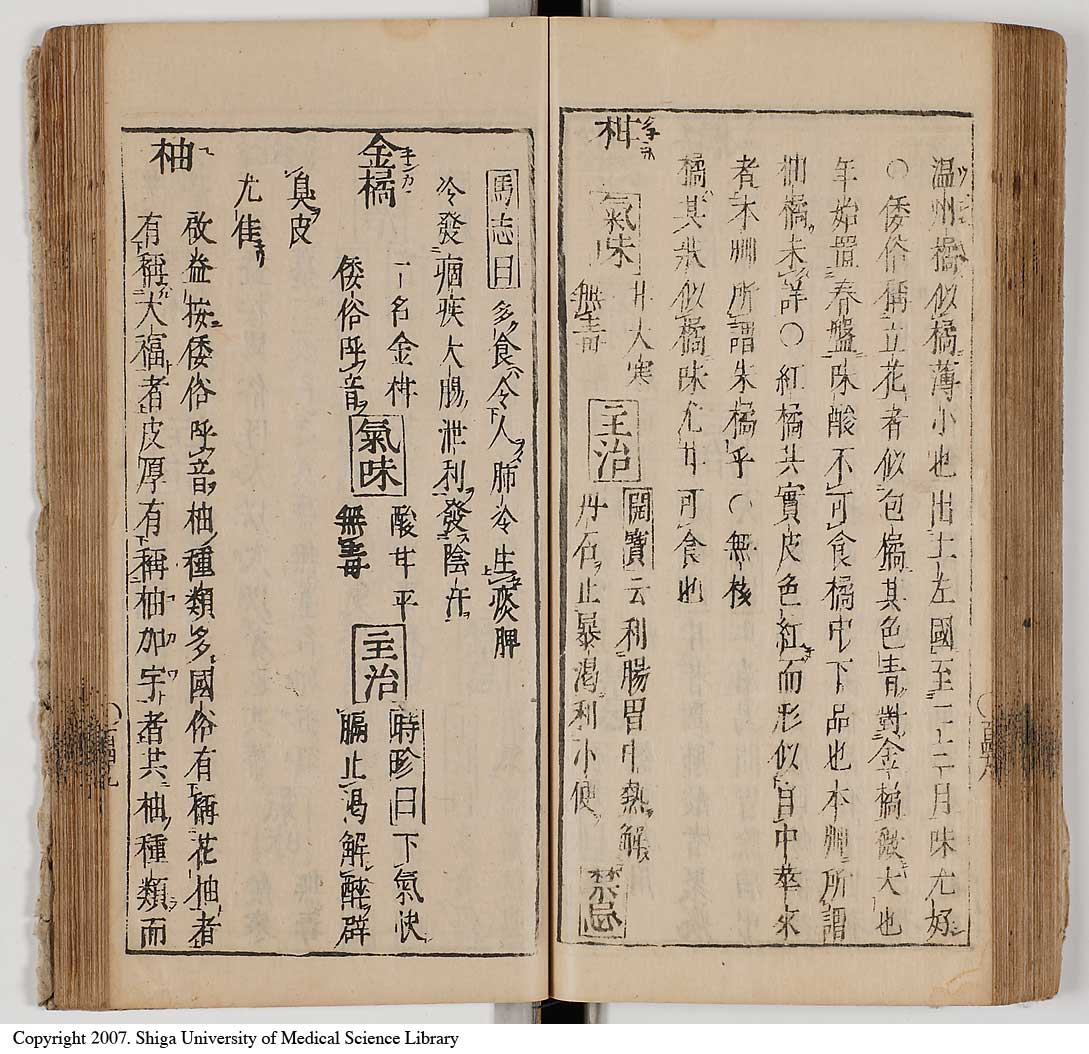 温州橘似橘薄小也出土左國至一二三月味尤好
○倭俗稱立花者似包橘其色青對金橘微大也
年始置春盤味酸不可食橘中下品也本州所謂
柚橘未詳○紅橘其實皮色紅而形似自中華來
者本州所謂朱橘乎○無核
橘其狀似橘味尤甘可食也
柑
氣味 甘大寒
無毒
主治 開寶云利腸胃中熱解
丹石止暴渴利小便
禁忌
百四十八
馬志曰多食令人肺冷生痰脾
冷發痼疾大腸泄利發陰汗
金橘 キンカ
一名金柑
倭俗呼音
氣味 酸甘平
無毒
主治 時珍曰下氣快
膈止渴解醉辟
臭皮
尤佳
柚
啟益按倭俗呼音柚種類多國俗有稱花柚者
有稱大福者皮厚有稱柚加宇者其柚種類而
百四十九
Copyright 2007. Shiga University of Medical Science Library